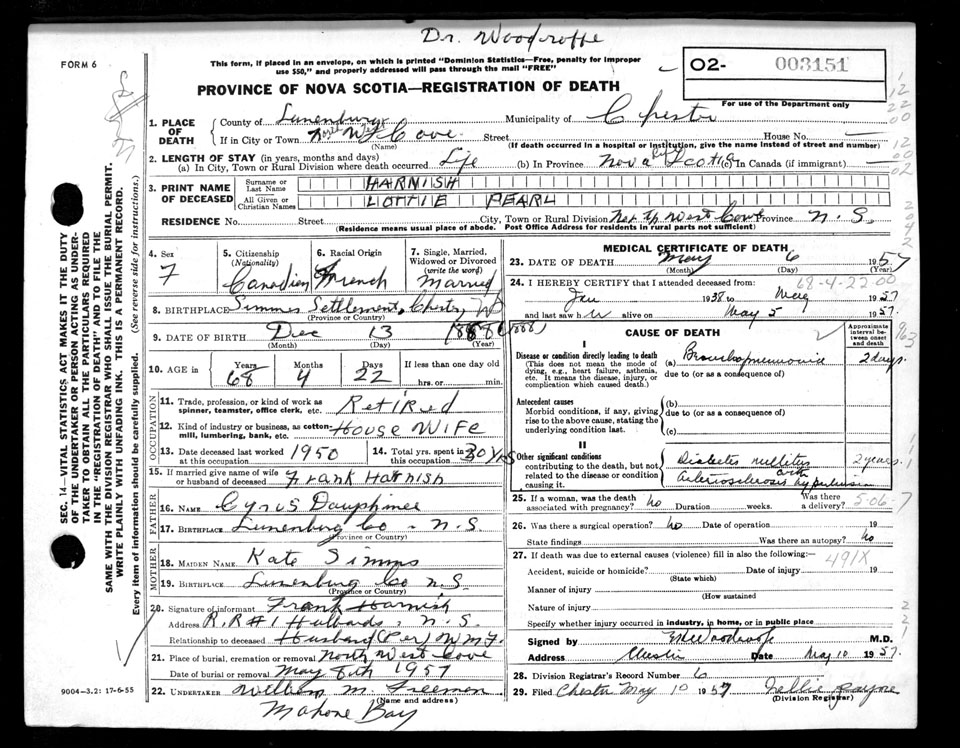 Dr. Woodroffe
FORM 6
This form, if placed in an envelope, on which is printed "Dominion Statistics—Free, penalty for improper
use $50," and properly addressed will pass through the mail "FREE"
O2- 003151
For use of the Department only
PROVINCE OF NOVA SCOTIA—REGISTRATION OF DEATH
1. PLACE OF DEATH
County of Lunenburg Municipality of Chester
If in City or Town North West Cove Street House No. —
(Name) (If death occurred in a hospital or institution, give the name instead of street and number)
2. LENGTH OF STAY (in years, months and days)
(a) In City, Town or Rural Division where death occurred Life (b) In Province Nova Scotia (c) In Canada (if immigrant) —
3. PRINT NAME OF DECEASED
Surname or Last Name HARNISH
All Given or Christian Names LOTTIE PEARL
RESIDENCE No. Street City, Town or Rural Division West Cove Province N.S.
(Residence means usual place of abode. Post Office Address for residents in rural parts not sufficient)
4. Sex
F
5. Citizenship (Nationality)
Canadian
6. Racial Origin
French
7. Single, Married, Widowed or Divorced (write the word)
Married
8. BIRTHPLACE Simms Settlement, Chester, N.S.
(Province or Country)
9. DATE OF BIRTH Dec 13 1888 (1888)
(Month) (Day) (Year)
10. AGE in Years Months Days If less than one day old
68 4 22 hrs. or min.
OCCUPATION
11. Trade, profession, or kind of work as spinner, teamster, office clerk, etc. Retired
12. Kind of industry or business, as cotton-mill, lumbering, bank, etc. House Wife
13. Date deceased last worked at this occupation 1950
14. Total yrs. spent in this occupation 30 yrs
15. If married give name of wife or husband of deceased Frank Harnish
FATHER
16. NAME Cyrus Dauphinee
17. BIRTHPLACE Lunenburg Co - N.S.
(Province or Country)
MOTHER
18. MAIDEN NAME Kate Simms
19. BIRTHPLACE Lunenburg Co N.S.
(Province or Country)
20. Signature of informant Frank Harnish
Address R.R #1 Hubbards, N.S.
Relationship to deceased Husband (Per) W.M.F.
21. Place of burial, cremation or removal North West Cove
Date of burial or removal May 8th 1957
22. UNDERTAKER William M. Freeman
(Name and address)
Mahone Bay
MEDICAL CERTIFICATE OF DEATH
23. DATE OF DEATH May 6 1957
(Month) (Day) (Year)
68-4-22-00
24. I HEREBY CERTIFY that I attended deceased from:
Jan 1938 to May 1957
and last saw h alive on May 5 1957.
CAUSE OF DEATH
Approximate interval between onset and death
I
Disease or condition directly leading to death
(This does not mean the mode of dying, e.g., heart failure, asthenia, etc. It means the disease, injury, or complication which caused death.)
(a) Bronchopneumonia 2 days.
due to (or as a consequence of)
Antecedent causes
Morbid conditions, if any, giving rise to the above cause, stating the underlying condition last.
(b)
due to (or as a consequence of)
(c)
II
Other significant conditions
contributing to the death, but not related to the disease or condition causing it.
Diabetes mellitus 2 years.
Arteriosclerosis with hypertension
25. If a woman, was the death associated with pregnancy? no Duration weeks. Was there a delivery?
26. Was there a surgical operation? no Date of operation 19
State findings Was there an autopsy? no
27. If death was due to external causes (violence) fill in also the following:—
491X
Accident, suicide or homicide? Date of injury 19
(State which)
Manner of injury
(How sustained
Nature of injury
Specify whether injury occurred in industry, in home, or in public place
Signed by Woodroofe M.D.
Address Chester Date May 10 1957.
28. Division Registrar's Record Number 6
29. Filed Chester May 10 1957 Nellie Payne
(Division Registrar)
SEC. 14—VITAL STATISTICS ACT MAKES IT THE DUTY
OF THE UNDERTAKER OR PERSON ACTING AS UNDER-
TAKER TO OBTAIN ALL THE PARTICULARS REQUIRED
IN THE "REGISTRATION OF DEATH" AND TO FILE THE
SAME WITH THE DIVISION REGISTRAR WHO SHALL ISSUE THE BURIAL PERMIT.
WRITE PLAINLY WITH UNFADING INK. THIS IS A PERMANENT RECORD.
Every item of information should be carefully supplied. (See reverse side for instructions.)
9004—3.2: 17-6-55